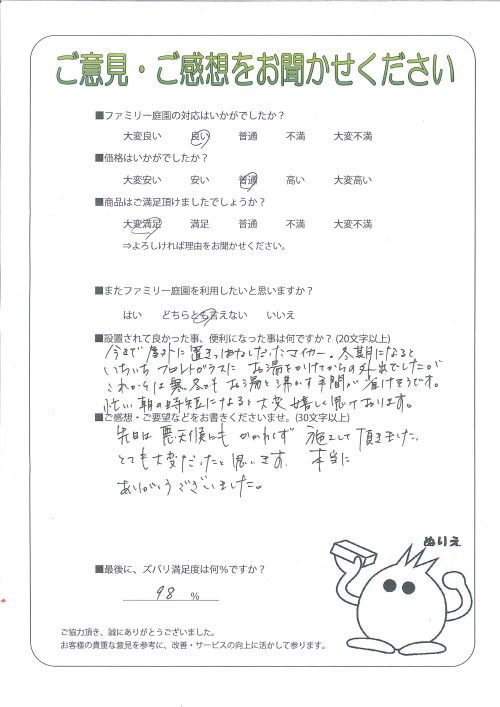 ご意見・ご感想をお聞かせください
■ファミリー庭園の対応はいかがでしたか？
大変良い 良い 普通 不満 大変不満
■価格はいかがでしたか？
大変安い 安い 普通 高い 大変高い
■商品はご満足頂けましたでしょうか？
大変満足 満足 普通 不満 大変不満
⇒よろしければ理由をお聞かせください。
■またファミリー庭園を利用したいと思いますか？
はい どちらとも言えない いいえ
■設置されて良かった事、便利になった事は何ですか？(20文字以上)
今まで屋外に置きっぱなしだったマイカー。冬期になると
いちいちフロントガラスに お湯をかけてからの外出でしたが
これからは寒冬でも お湯を沸かす手間が省けそうです。
忙しい朝の時短になると大変嬉しく思っております。
■ご感想・ご要望などをお書きくださいませ。(30文字以上)
先日は悪天候にも かかわらず 施工して頂きました。
とても大変だったと思います。 本当に
ありがとうございました。
ぬりえ
■最後に、ズバリ満足度は何％ですか？
98 ％
ご協力頂き、誠にありがとうございました。
お客様の貴重な意見を参考に、改善・サービスの向上に活かして参ります。